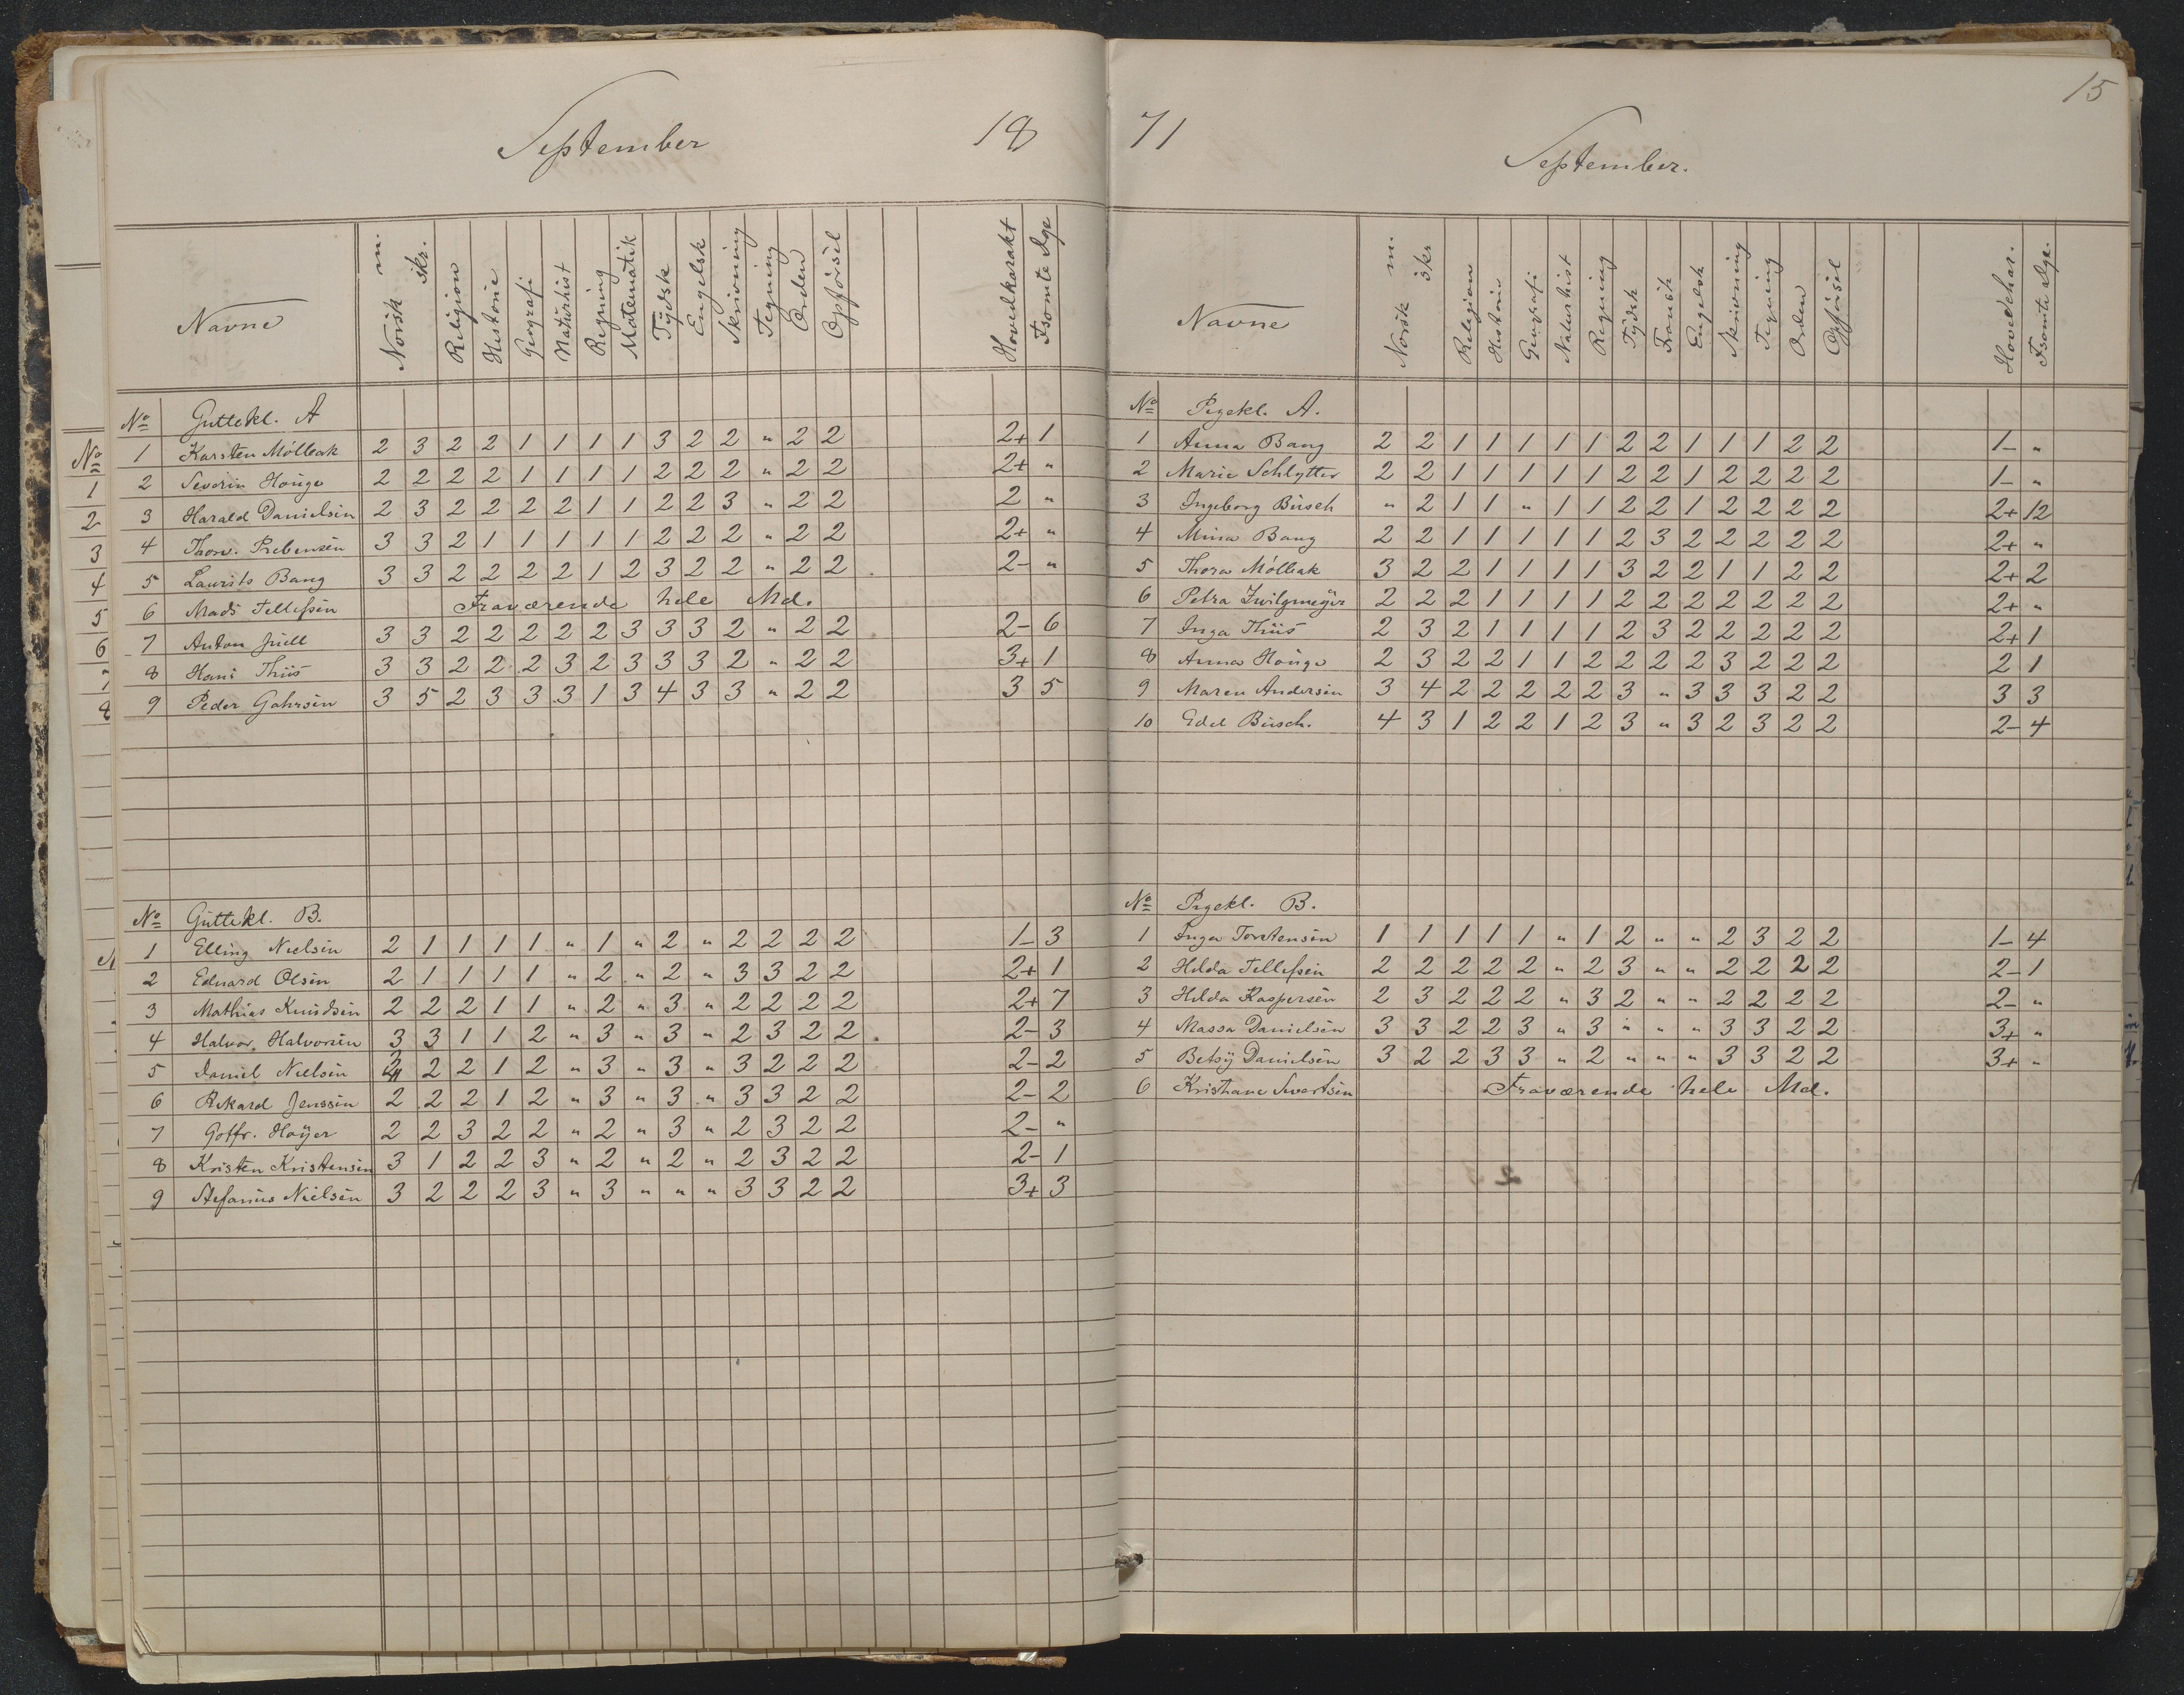 September 18
Navne Norsk m. skr. Religion Historie Geografi Naturhist Regning Matematik Tydsk Engelsk Skrivning Tegning Orden Opførsel Hovedkarakt Fsømte Dge
No Guttekl. A
1 Karsten Møllbak 2 3 2 2 1 1 1 1 3 2 2 " 2 2 2+ 1
2 Severin Houge 2 2 2 2 1 1 1 1 2 2 2 " 2 2 2+ "
3 Harald Danielsen 2 3 2 2 2 2 1 1 2 2 3 " 2 2 2 "
4 Thorv. Prebensen 3 3 2 1 1 1 1 1 2 2 2 " 2 2 2+ "
5 Laurits Bang 3 3 2 2 2 2 1 2 3 2 2 " 2 2 2- "
6 Mads Tellefsen Fraværende hele Md.
7 Anton Juell 3 3 2 2 2 2 2 3 3 3 2 " 2 2 2- 6
8 Hans Thiis 3 3 2 2 2 3 2 3 3 3 2 " 2 2 3+ 1
9 Peder Gahrsen 3 5 2 3 3 3 1 3 4 3 3 " 2 2 3 5
No Guttekl. B.
1 Elling Nielsen 2 1 1 1 1 " 1 " 2 " 2 2 2 2 1- 3
2 Eduard Olsen 2 1 1 1 1 " 2 " 2 " 3 3 2 2 2+ 1
3 Mathias Knudsen 2 2 2 1 1 " 2 " 3 " 2 2 2 2 2+ 7
4 Halvor Halvorsen 3 3 1 1 2 " 3 " 3 " 2 3 2 2 2- 3
5 Daniel Nielsen 2 2 1 2 " 3 " 3 " 3 2 2 2 2- 2
6 Rikard Jenssen 2 2 2 1 2 " 3 " 3 " 3 3 2 2 2- 2
7 Gotfr. Høyer 2 2 3 2 2 " 2 " 3 " 2 3 2 2 2- "
8 Kristen Kristensen 3 1 2 2 3 " 2 " 2 " 2 3 2 2 2- 1
9 Stefanus Nielsen 3 2 2 2 3 " 3 " " " 3 3 2 2 3+ 3
71 September. 15
Navne Norsk m. skr Religion Historie Geografi Naturhist Regning Tydsk Fransk Engelsk Skrivning Tegning Orden Opførsel Hovedchar. Fsømte Dge.
No Pigekl. A.
1 Anna Bang 2 2 1 1 1 1 1 2 2 1 1 1 2 2 1- "
2 Marie Schlytter 2 2 1 1 1 1 1 2 2 1 2 2 2 2 1- "
3 Ingeborg Busch " 2 1 1 " 1 1 2 2 1 2 2 2 2 2+ 12
4 Mina Bang 2 2 1 1 1 1 1 2 3 2 2 2 2 2 2+ "
5 Thora Møllbak 3 2 2 1 1 1 1 3 2 2 1 1 2 2 2+ 2
6 Petra Zwilgmeyer 2 2 2 1 1 1 1 2 2 2 2 2 2 2 2+ "
7 Inga Thiis 2 3 2 1 1 1 1 2 3 2 2 2 2 2 2+ 1
8 Anna Houge 2 3 2 2 1 1 2 2 2 2 3 2 2 2 2 1
9 Maren Andersen 3 4 2 2 2 2 2 3 " 3 3 3 2 2 3 3
10 Edel Busch. 4 3 1 2 2 1 2 3 " 3 2 3 2 2 2- 4
No Pigekl. B.
1 Inga Torstensen 1 1 1 1 1 " 1 2 " " 2 3 2 2 1- 4
2 Hilda Tellefsen 2 2 2 2 2 " 2 3 " " 2 2 2 2 2- 1
3 Hilda Kaspersen 2 3 2 2 2 " 3 2 " " 2 2 2 2 2- "
4 Massa Danielsen 3 3 2 2 3 " 3 " " " 3 3 2 2 3+ "
5 Betsy Danielsen 3 2 2 3 3 " 2 " " " 3 3 2 2 3+ "
6 Kristiane Sivertsen Fraværende hele Md.